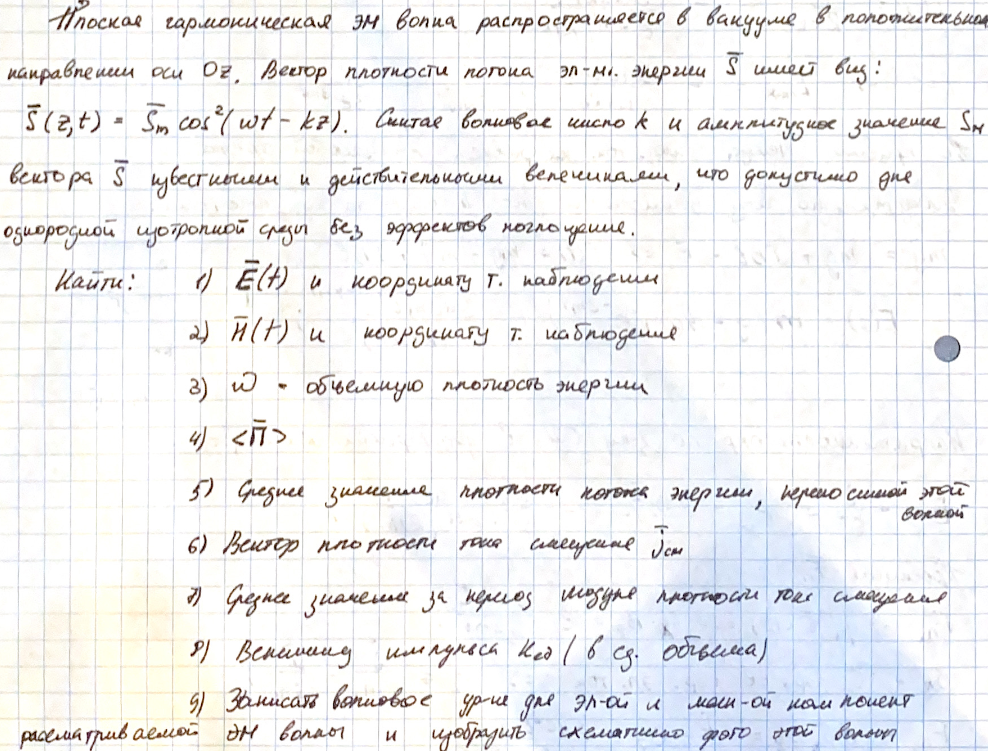 Плоская гармоническая ЭМ волна распространяется в вакууме в положительном
направлении оси Oz. Вектор плотности потока эл-м. энергии S̄ имеет вид:
S̄(z,t) = S̄m cos²(ωt - kz). Считая волновое число k и амплитудное значение Sm
вектора S̄ известными и действительными величинами, что допустимо для
однородной изотропной среды без эффектов поглощения.
Найти: 1) Ē(t) и координату т. наблюдения
2) H̄(t) и координату т. наблюдения
3) ω - объемную плотность энергии
4) <П̄>
5) Среднее значение плотности потока энергии, переносимой этой
волной
6) Вектор плотности тока смещения j̄см
7) Среднее значение за период модуля плотности тока смещения
8) Величину импульса Kед (в ед. объема)
9) Записать волновое ур-ие для эл-ой и магн-ой компонент
рассматриваемой ЭМ волны и изобразить схематично фото этой волны